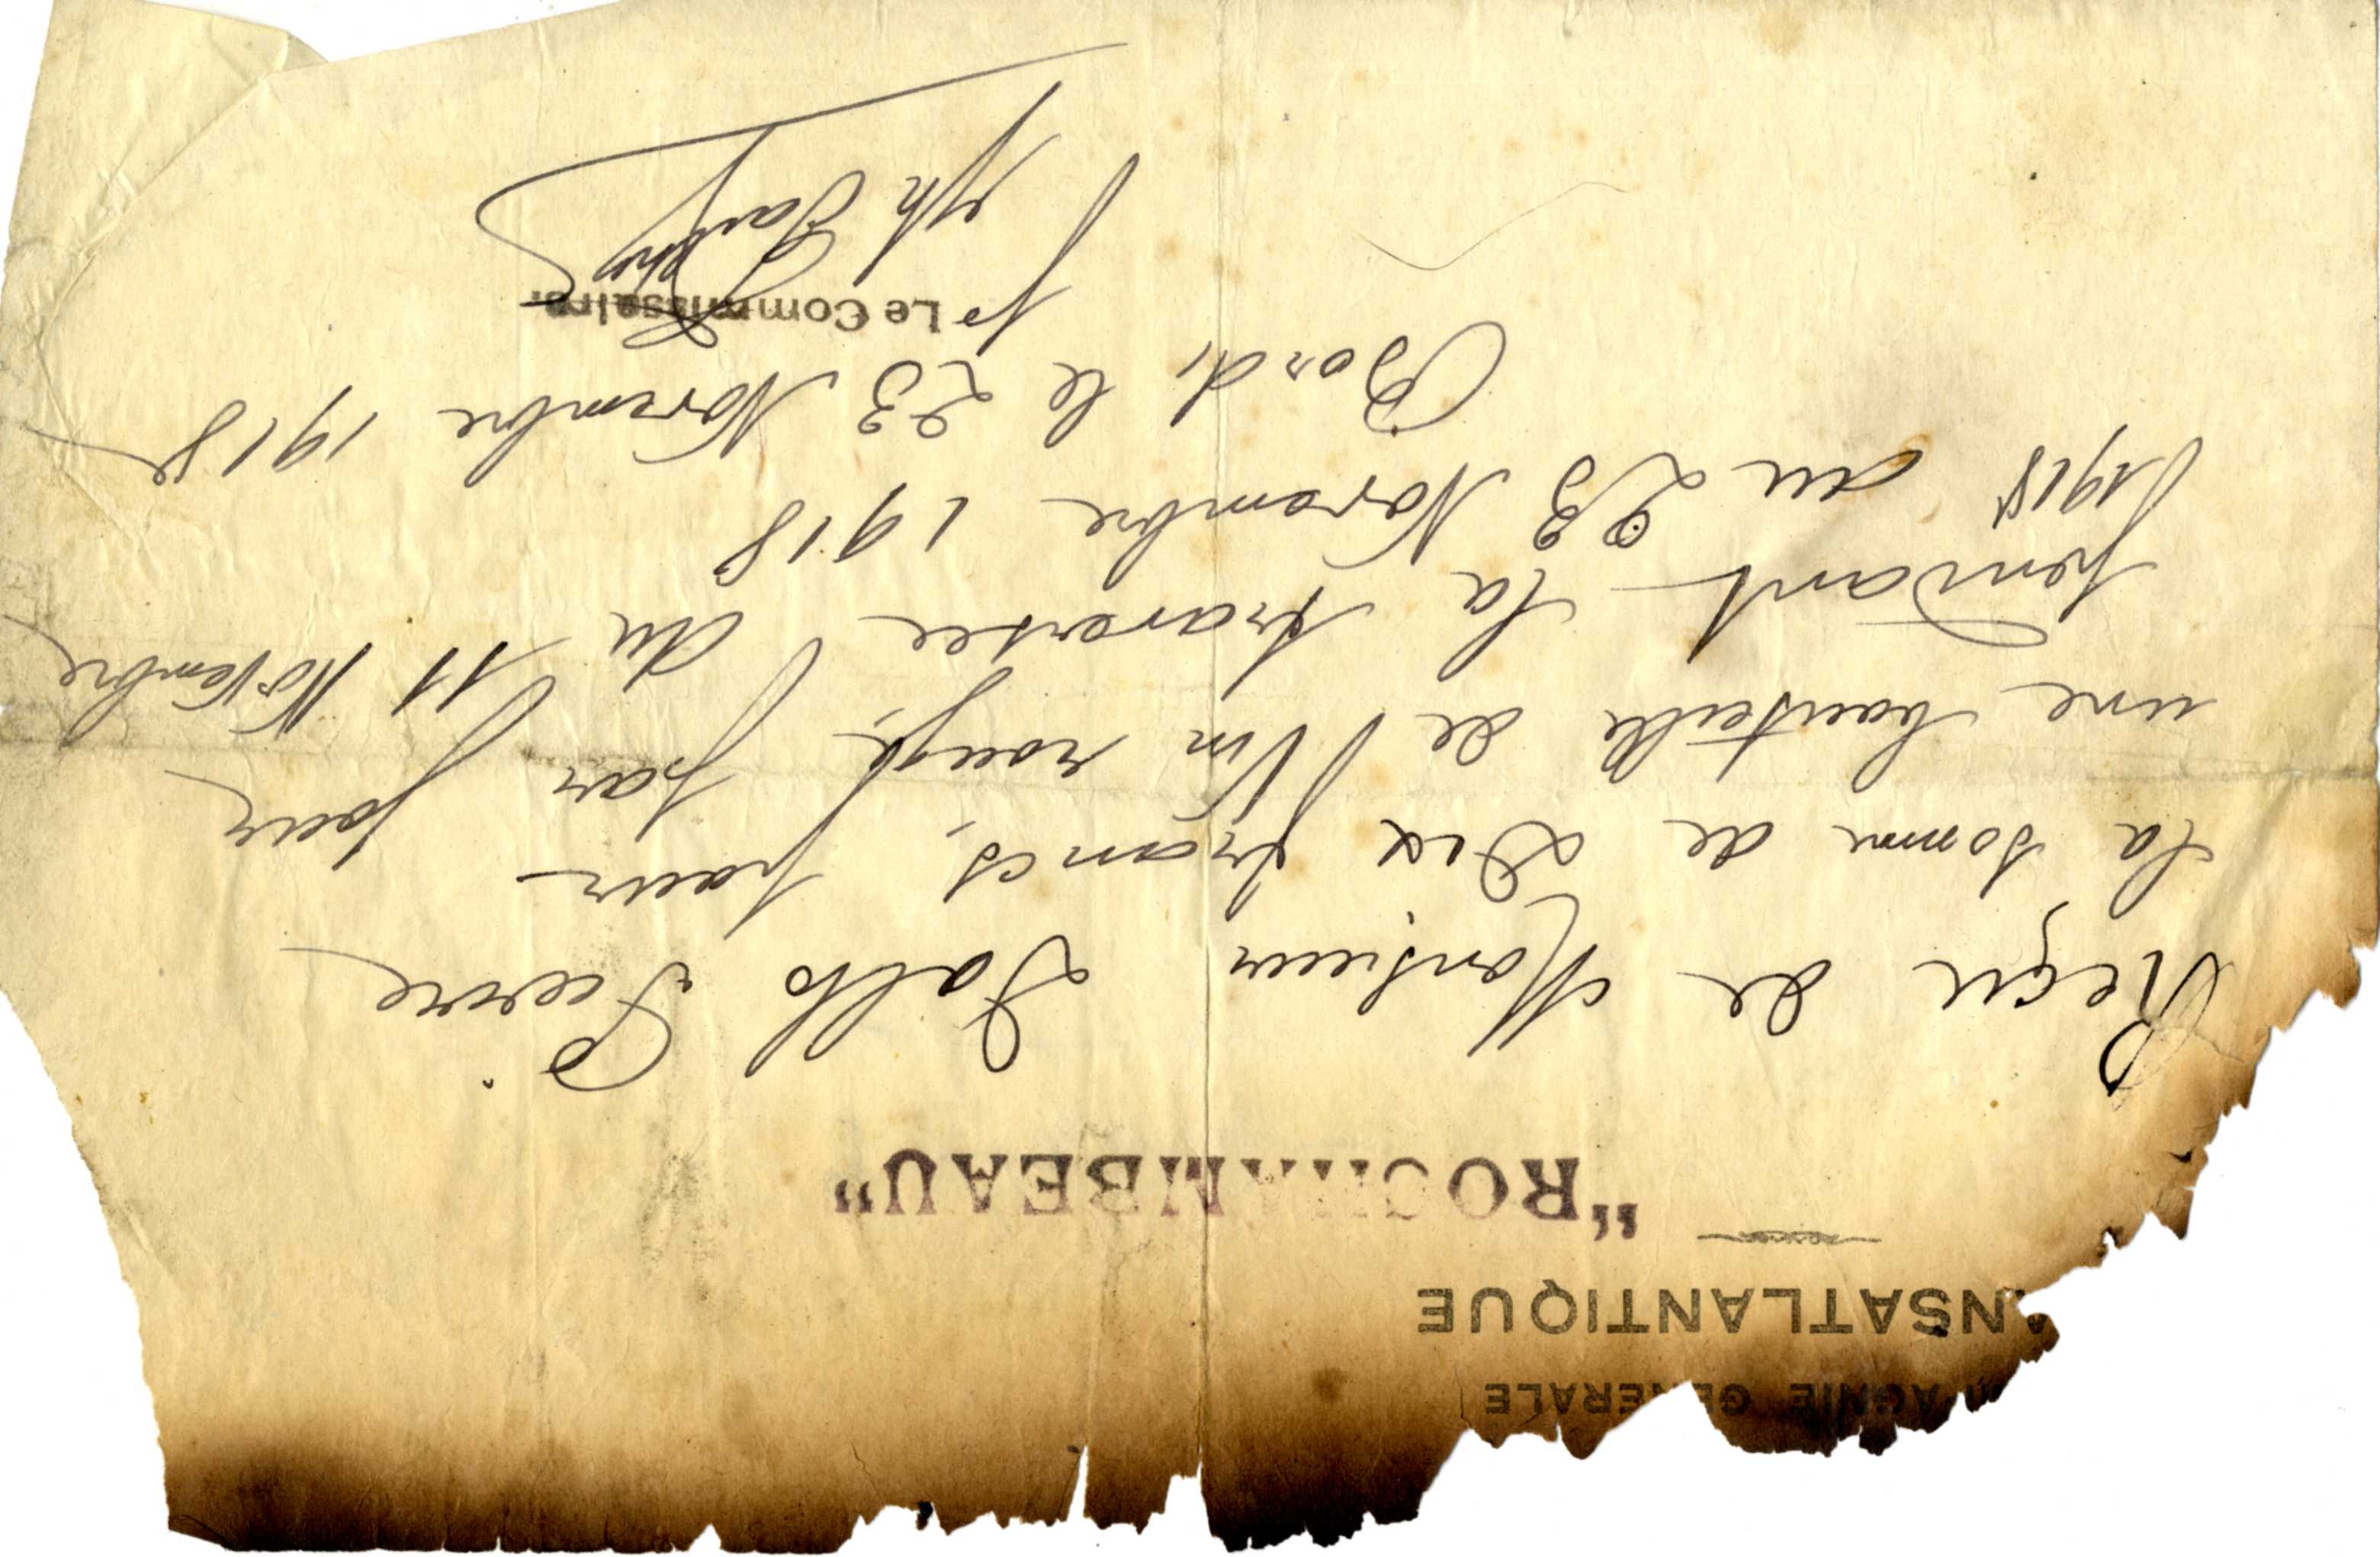 AGNIE GENERALE
NSATLANTIQUE
"ROCHAMBEAU"
Reçu de Monsieur Pierre
la somme de Dix francs, pour
une bouteille de Vin rouge, par jour
pendant la traversée du 11 Novembre
1918 au 23 Novembre 1918
Bord, le 23 Novembre 1918
Le Commissaire